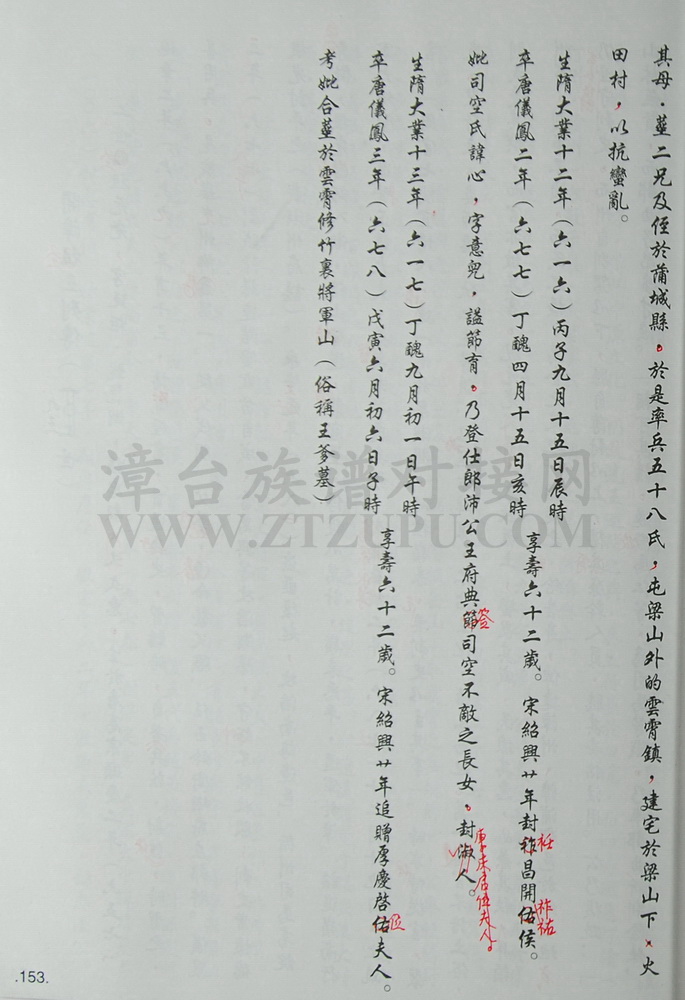 其母．塟二兄及侄於蒲城縣。於是率兵五十八氏，屯梁山外的雲霄鎮，建宅於梁山下．火
田村，以抗蠻亂。
生隋大業十二年（六一六）丙子九月十五日辰時
卒唐儀鳳二年（六七七）丁醜四月十五日亥時
享壽六十二歲。宋紹興廿年封祚昌開佑侯。
妣司空氏諱心，字意兒，謚節育。乃登仕郎沛公王府典節司空不敵之長女．封淑人。
生隋大業十三年（六一七）丁醜九月初一日午時
卒唐儀鳳三年（六七八）戊寅六月初六日子時
享壽六十二歲。宋紹興廿年追贈厚慶啓佑夫人。
考妣合塟於雲霄修竹裏將軍山（俗稱王爹墓）
漳台族谱对接网
WWW.ZTZUPU.COM
.153.